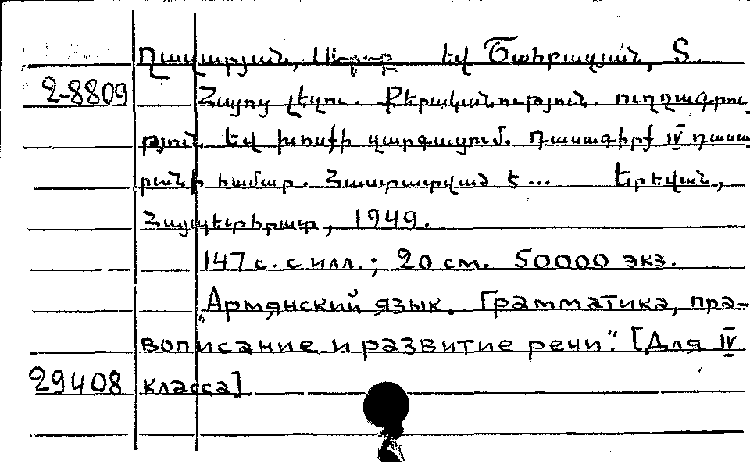 Ղազարյան, Սերգ եվ Ծաիրազյան, Տ.
2-8809 Հայոց լեզու. Քերականություն. ուղղագրու
թյուն եվ խոսքի զարգացում. Դասագիրք IV դասա
րանի համար. Հաստատված է... Երեվան,
Հայպետհրատ, 1949.
147 с. с илл.; 20 см. 50000 экз.
„Армянский язык. Грамматика, пра-
вописание и развитие речи". [Для IV
29408 класса]